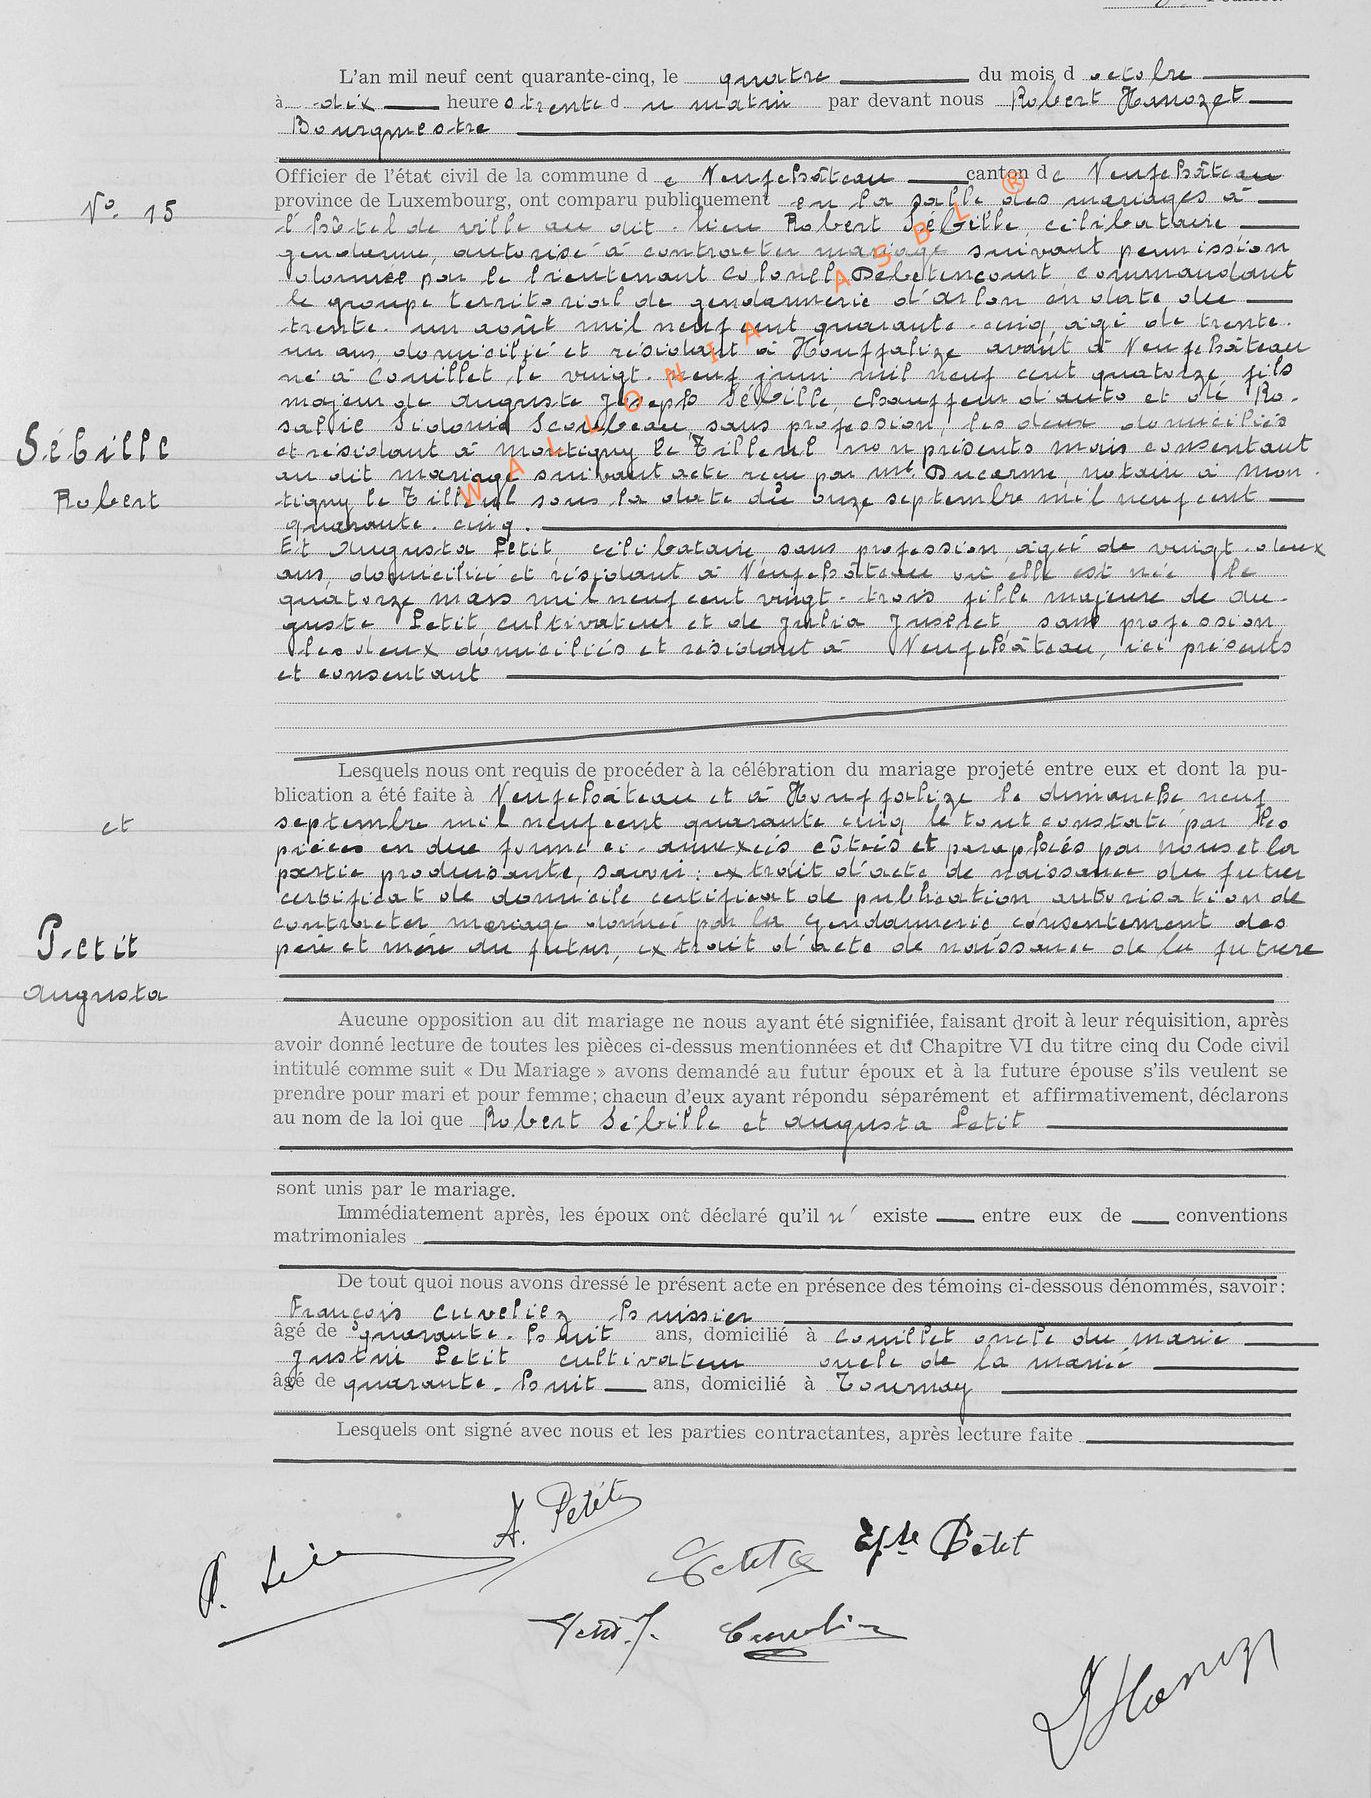 Feuillet.
L'an mil neuf cent quarante-cinq, le quatre du mois d octobre
à dix heures trente d u matin par devant nous Robert Hanozet
Bourgmestre
Officier de l'état civil de la commune d e Neufchâteau canton de Neufchâteau
N° 15
province de Luxembourg, ont comparu publiquement en la salle des mariages à
l'hôtel de ville au dit lieu Robert Sébille, célibataire
gendarme, autorisé à contracter mariage suivant permission
donnée par le lieutenant Colonel Debetencourt commandant
le groupe territorial de gendarmerie d'Arlon en date du
trente-un août mil neuf cent quarante-cinq, âgé de trente-
un ans, domicilié et résidant à Houffalize avant à Neufchâteau
né à Couillet le vingt-neuf juin mil neuf cent quatorze fils
majeur de Auguste Joseph Sébille, chauffeur d'auto et de Ro-
salie Sidonie Scoubeau, sans profession, les deux domiciliés
et résidant à Montigny le Tilleul non présents mais consentant
au dit mariage suivant acte reçu par Me Ducarme, notaire à Mon-
tigny le Tilleul sous la date du onze septembre mil neuf cent
quarante-cinq.
Sébille
Robert
Et Augusta Petit, célibataire, sans profession, âgée de vingt-deux
ans, domiciliée et résidant à Neufchâteau où elle est née le
quatorze mars mil neuf cent vingt-trois fille majeure de Au-
guste Petit, cultivateur et de Julia Jusseret, sans profession,
les deux domiciliés et résidant à Neufchâteau, ici présents
et consentant
Lesquels nous ont requis de procéder à la célébration du mariage projeté entre eux et dont la pu-
blication a été faite à Neufchâteau et à Houffalize le dimanche neuf
septembre mil neuf cent quarante cinq le tout constaté par les
pièces en due forme ci-annexées cotées et paraphées par nous et la
partie produisante, savoir: extrait d'acte de naissance du futur
certificat de domicile certificat de publication autorisation de
contracter mariage donnée par la gendarmerie consentement des
père et mère du futur, extrait d'acte de naissance de la future
et
Petit
Augusta
Aucune opposition au dit mariage ne nous ayant été signifiée, faisant droit à leur réquisition, après
avoir donné lecture de toutes les pièces ci-dessus mentionnées et du Chapitre VI du titre cinq du Code civil
intitulé comme suit « Du Mariage » avons demandé au futur époux et à la future épouse s'ils veulent se
prendre pour mari et pour femme; chacun d'eux ayant répondu séparément et affirmativement, déclarons
au nom de la loi que Robert Sébille et Augusta Petit
sont unis par le mariage.
Immédiatement après, les époux ont déclaré qu'il n' existe entre eux de conventions
matrimoniales
De tout quoi nous avons dressé le présent acte en présence des témoins ci-dessous dénommés, savoir:
François Cuveliez huissier
âgé de quarante-huit ans, domicilié à Couillet oncle du marié
Justin Petit cultivateur oncle de la mariée
âgé de quarante-huit ans, domicilié à Tournay
Lesquels ont signé avec nous et les parties contractantes, après lecture faite
A. Petit
Petit
Petit J.
WALLONIA ASBL ®